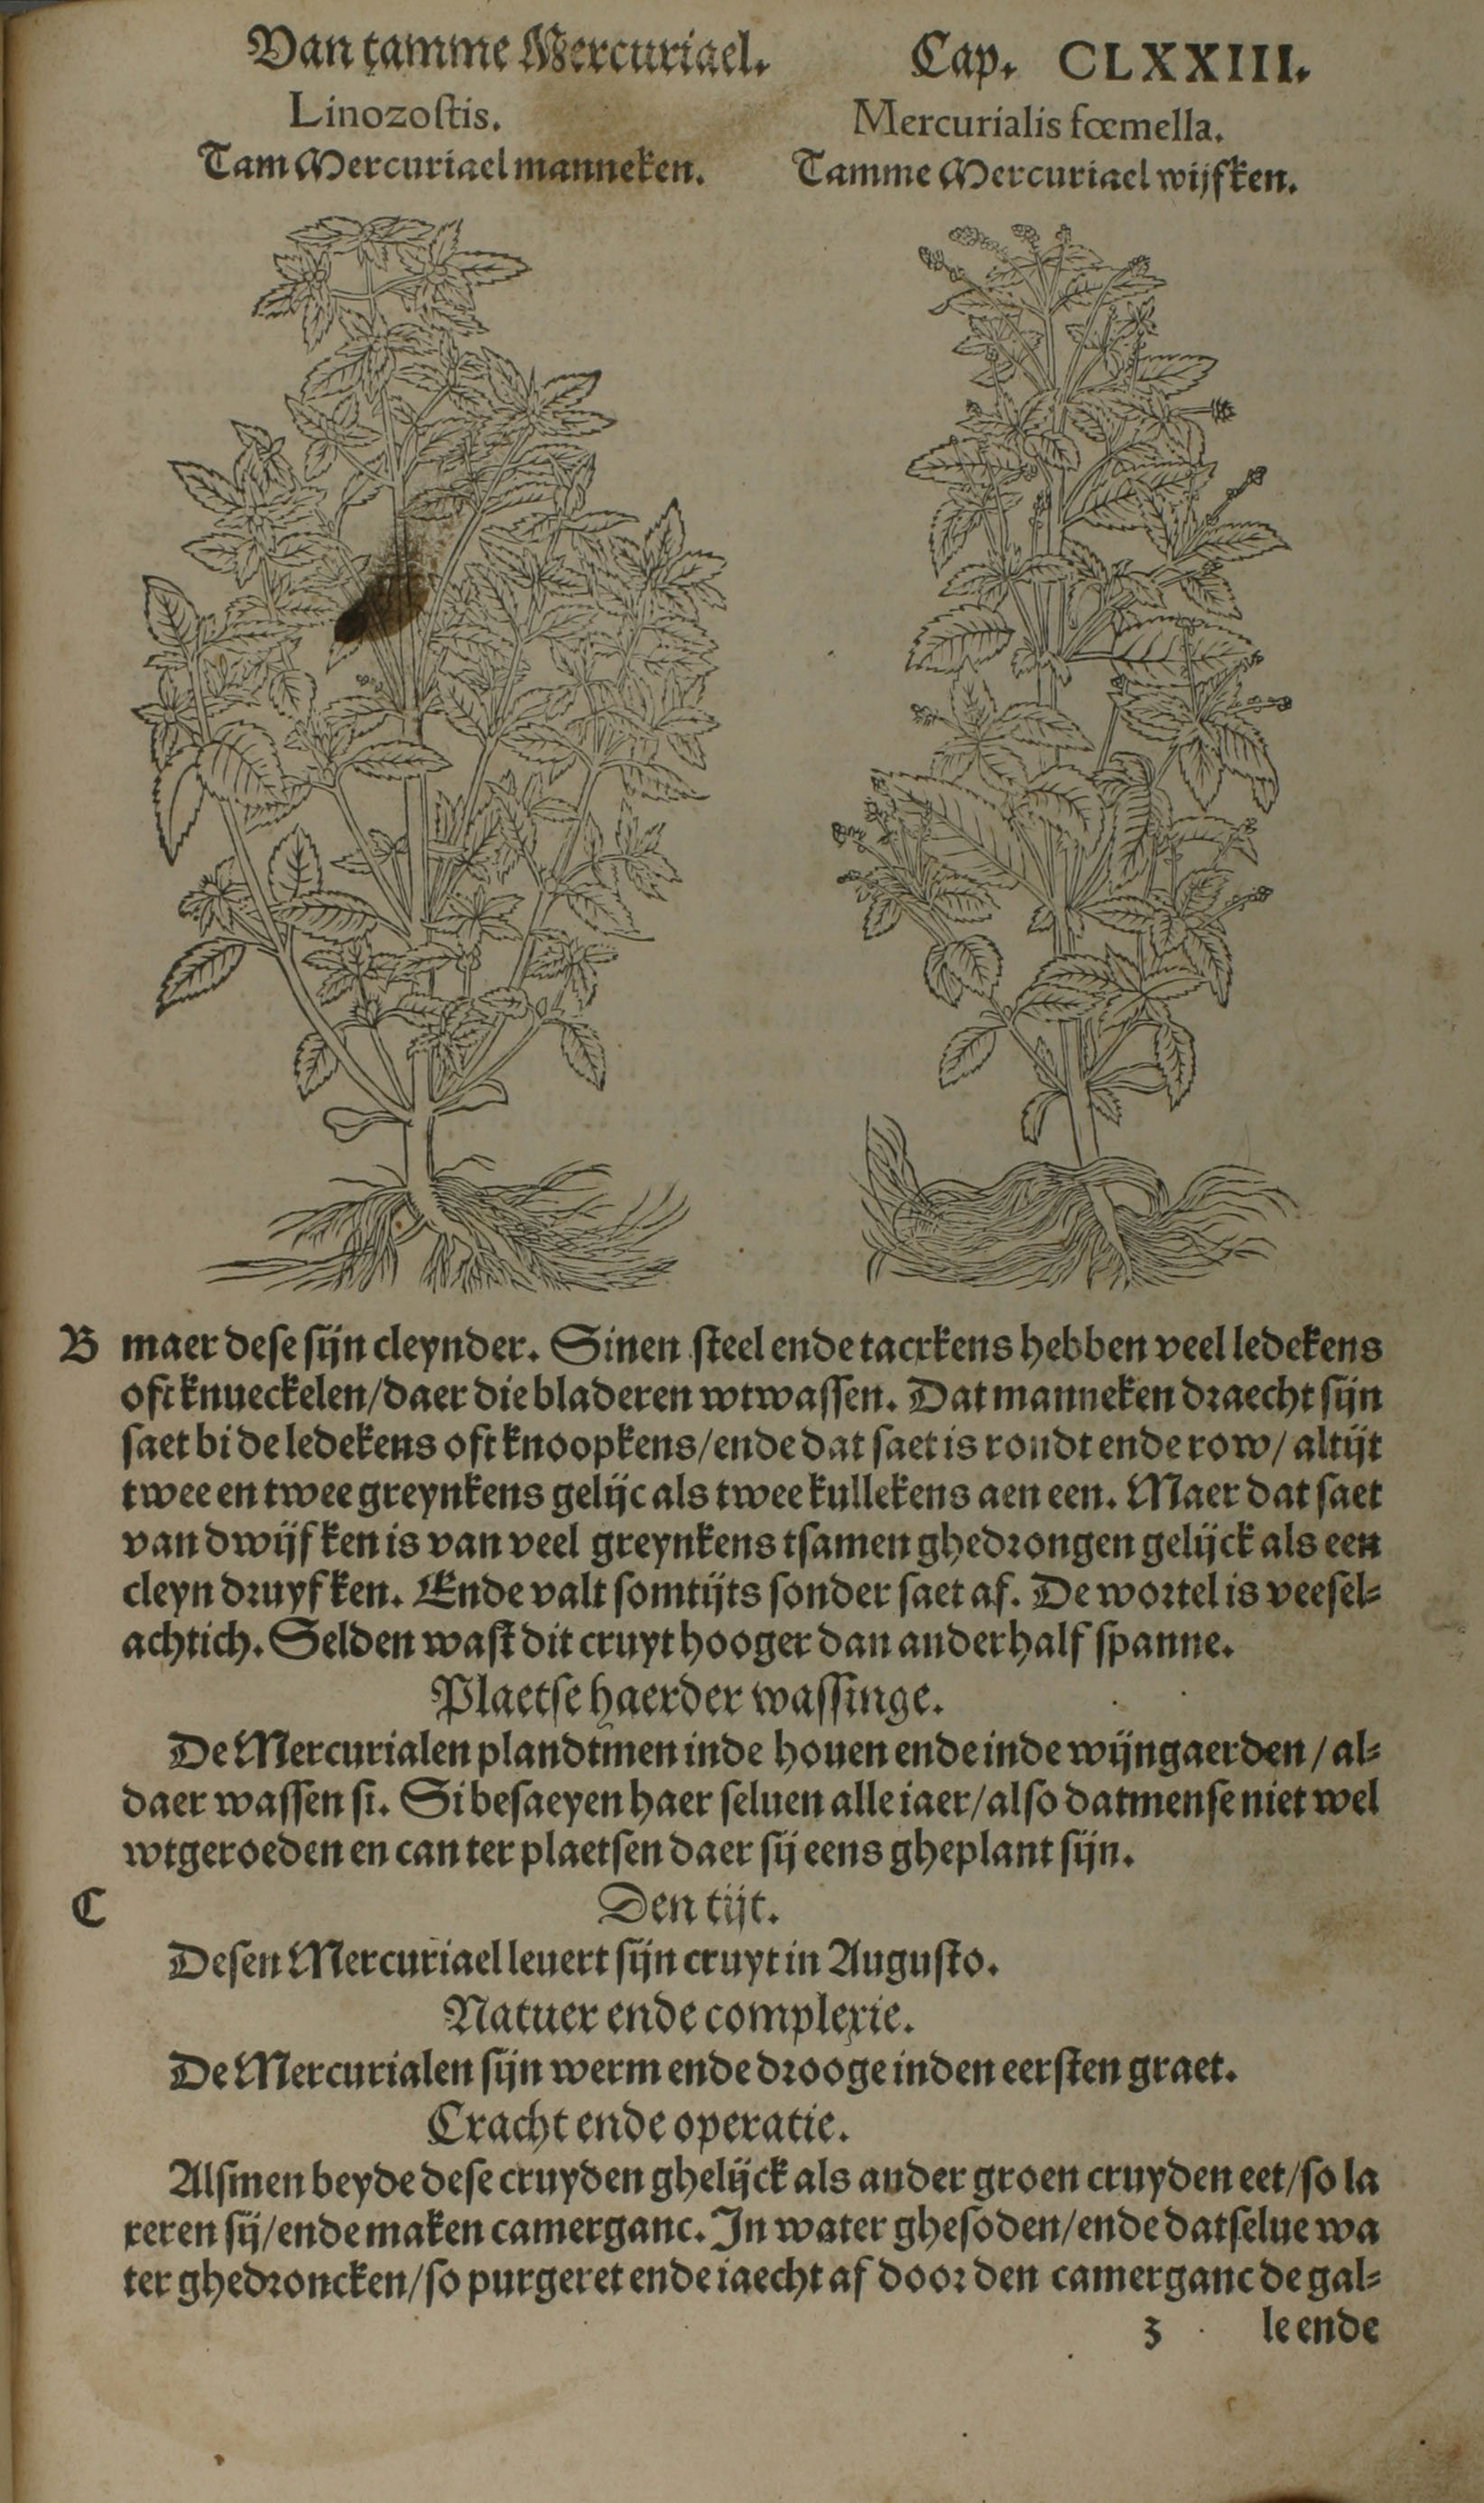 Van tamme Mercuriael. Cap. CLXXIII.
Linozostis. Mercurialis fœmella.
Tam Mercuriael manneken. Tamme Mercuriael wijfken.
B maer dese sijn cleynder. Sinen steel ende tacxkens hebben veel ledekens
oft knueckelen/daer die bladeren wtwassen. Dat manneken draecht sijn
saet bi de ledekens oft knoopkens/ende dat saet is rondt ende row/ altijt
twee en twee greynkens gelijc als twee kullekens aen een. Maer dat saet
van dwijfken is van veel greynkens tsamen ghedrongen gelijck als een
cleyn druyfken. Ende valt somtijts sonder saet af. De wortel is veesel=
achtich. Selden wast dit cruyt hooger dan anderhalf spanne.
Plaetse haerder wassinge.
De Mercurialen plandtmen inde houen ende inde wijngaerden/ al=
daer wassen si. Si besaeyen haer seluen alle iaer/also datmense niet wel
wtgeroeden en can ter plaetsen daer sij eens gheplant sijn.
C Den tijt.
Desen Mercuriael leuert sijn cruyt in Augusto.
Natuer ende complexie.
De Mercurialen sijn werm ende drooge inden eersten graet.
Cracht ende operatie.
Alsmen beyde dese cruyden ghelijck als ander groen cruyden eet/so la
xeren sij/ende maken camerganc. In water ghesoden/ende datselue wa
ter ghedroncken/so purgeret ende iaecht af door den camerganc de gal=
z le ende